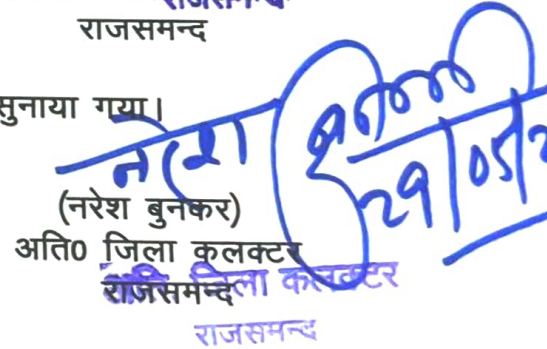 राजसमन्द
राजसमन्द
सुनाया गया।
नरेश
29/05/2
(नरेश बुनकर)
अति0 जिला कलक्टर
राजसमन्द
अति. जिला कलक्टर
राजसमन्द